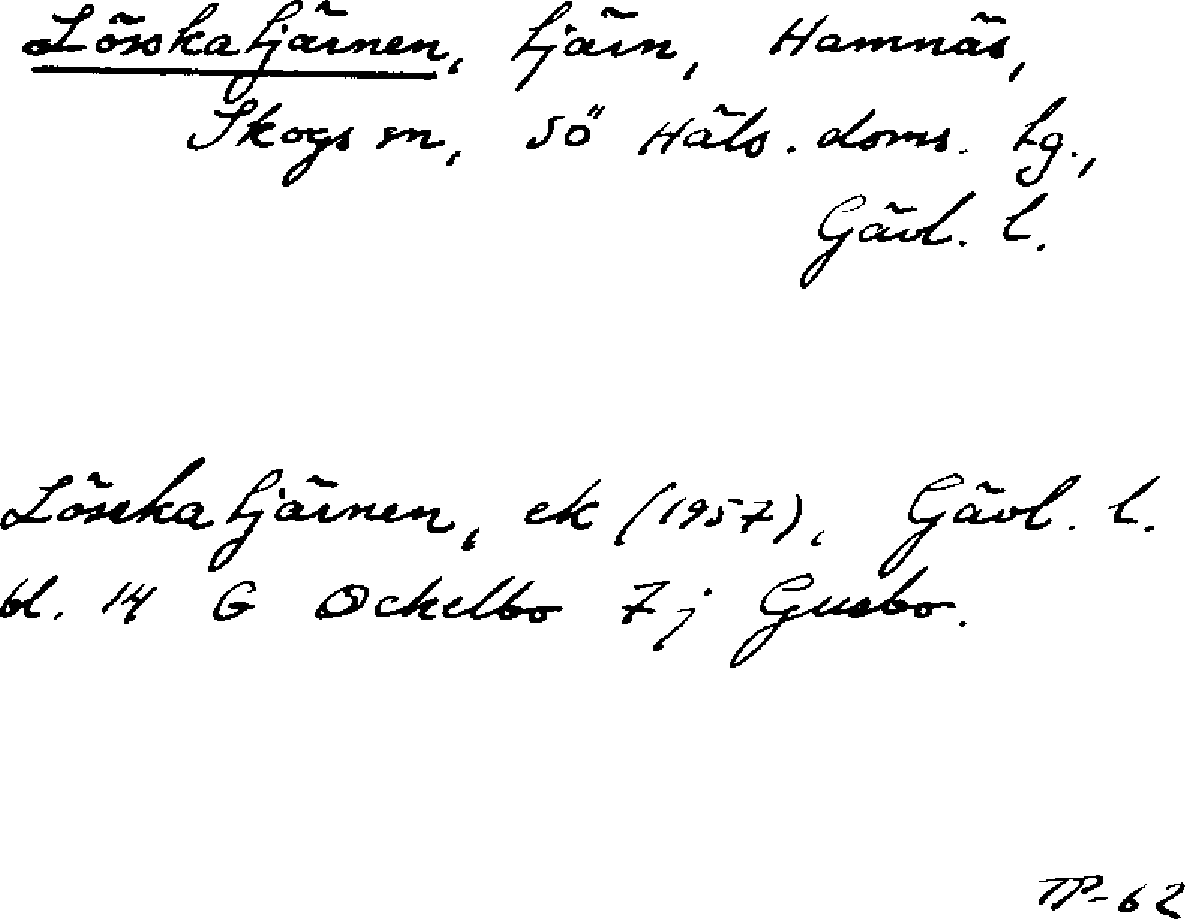 Löskatjärnen, tjärn, Hamnäs,
Skogs sn, Sö Häls. doms. tg.,
Gävl. l.
Löskatjärnen, ek (1957), Gävl. l.
bl. 14 G Ockelbo 7 j Gusbo.
TP-62